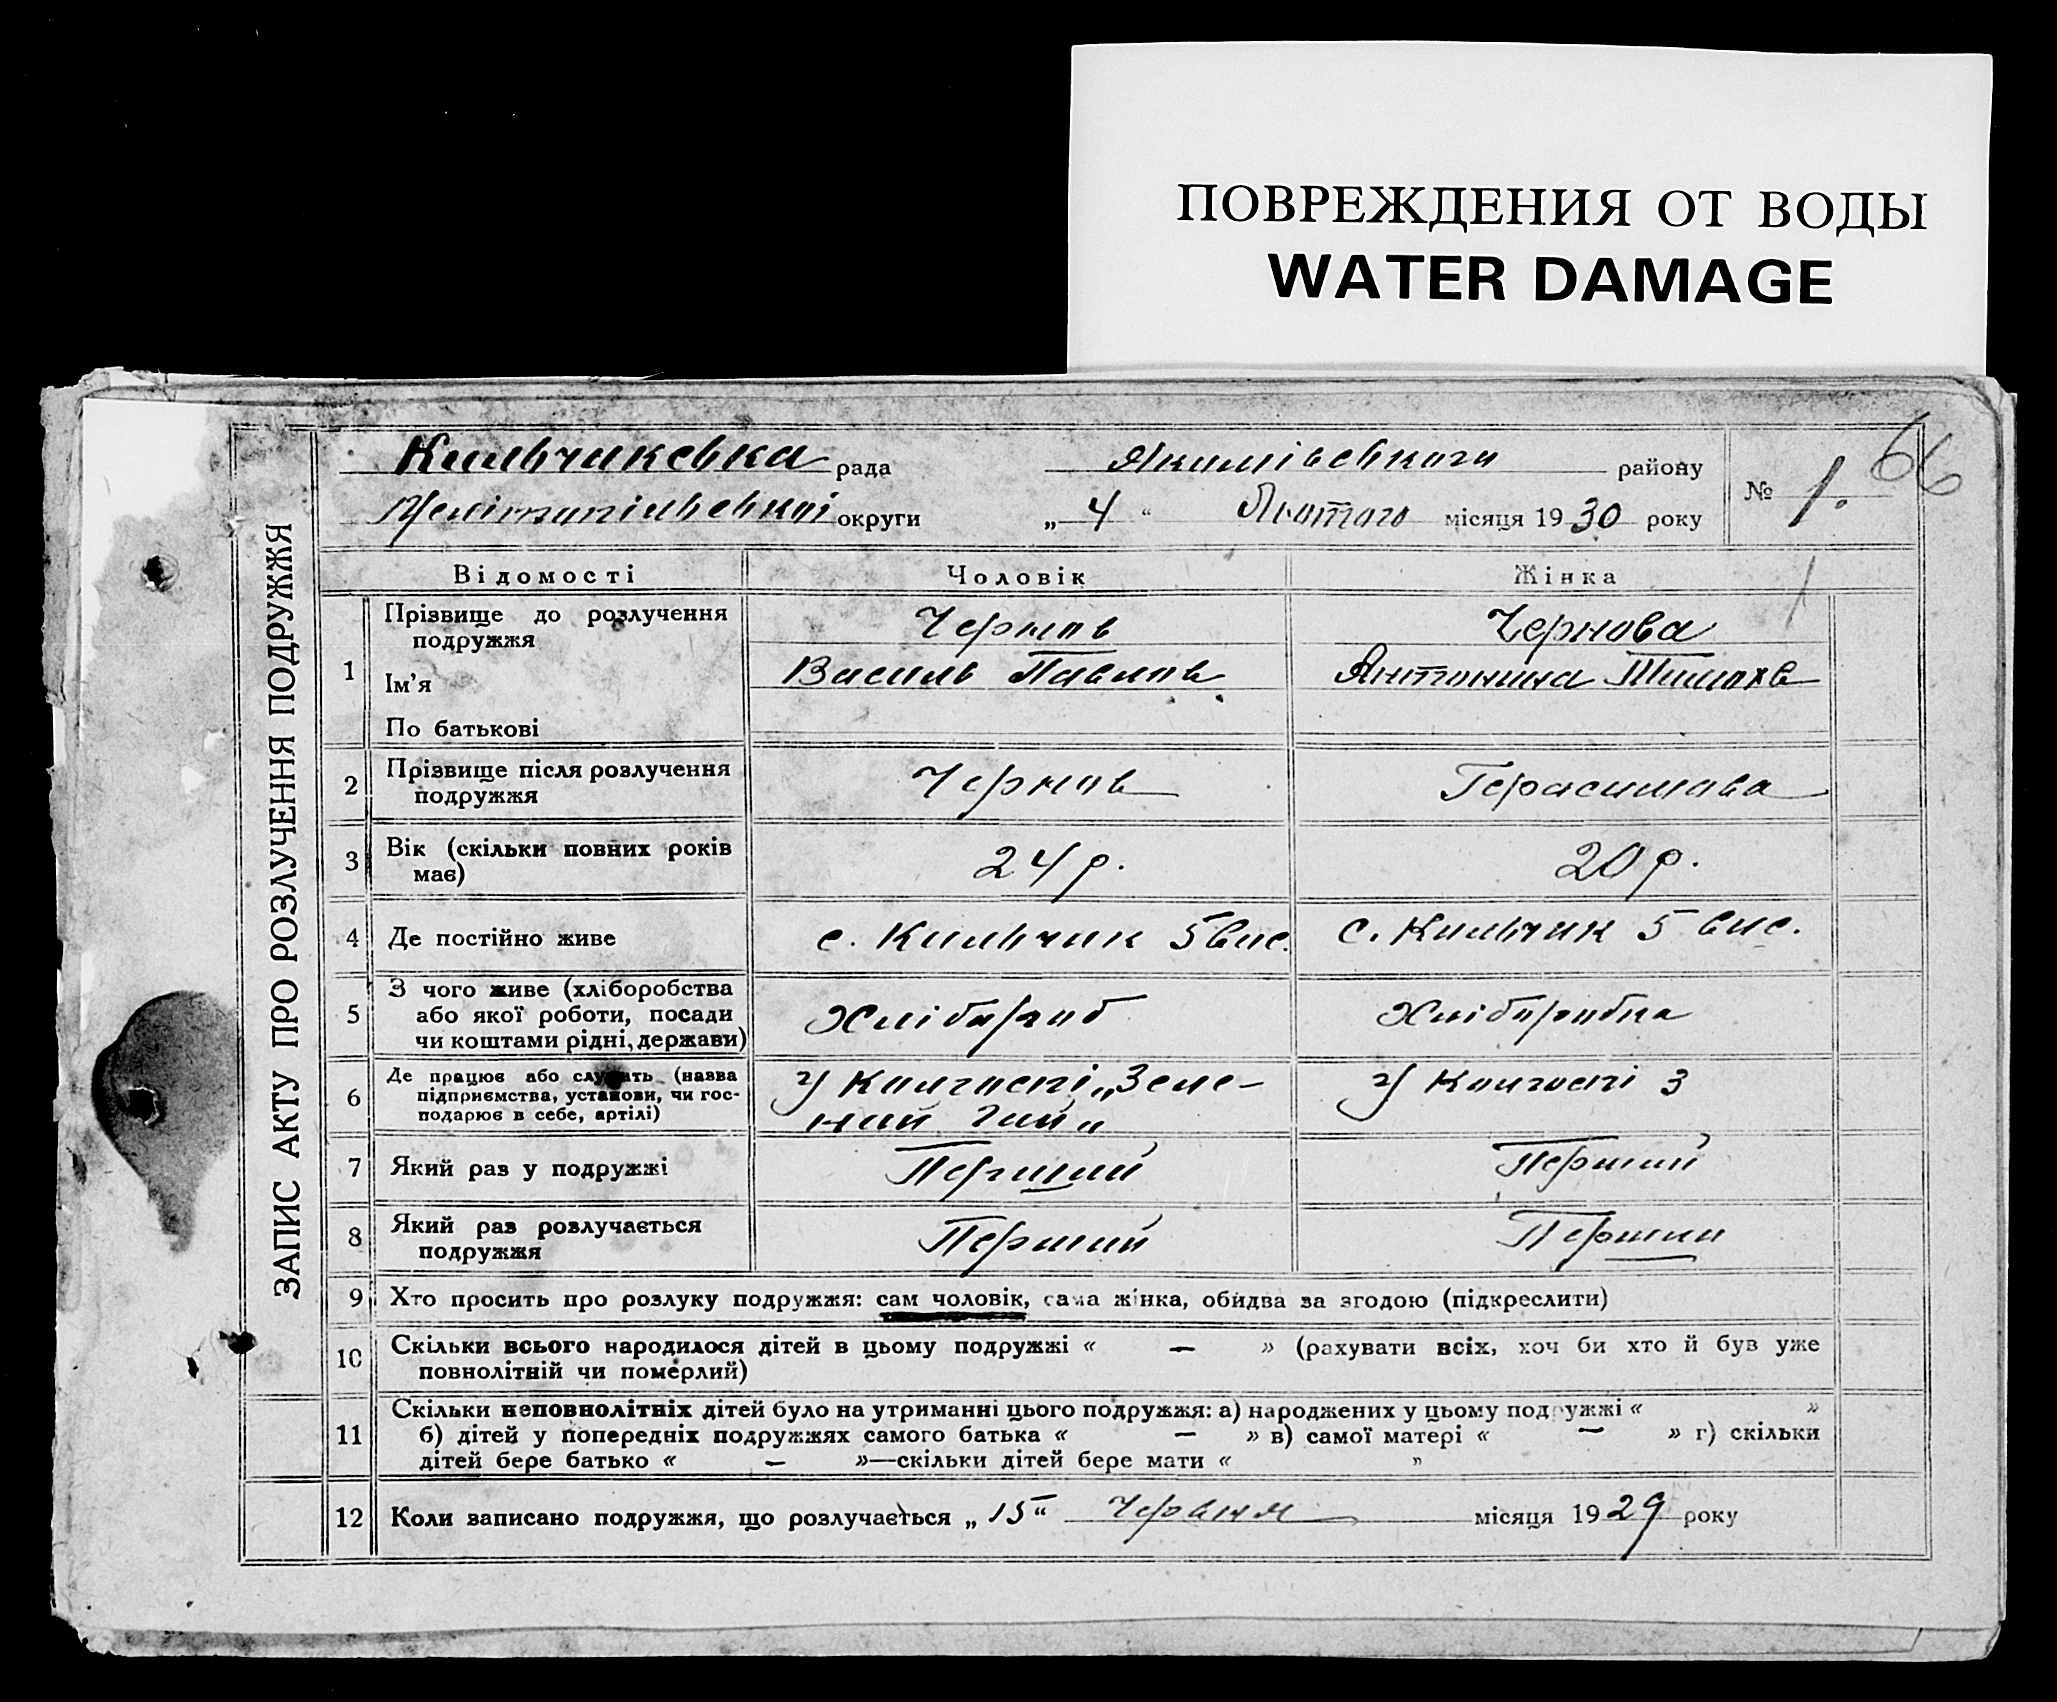 ПОВРЕЖДЕНИЯ ОТ ВОДЫ
WATER DAMAGE
66
Кильчикська рада Якимівського району
Мелітопільської округи „ 4 “ Лютого місяця 1930 року
№ 1.
ЗАПИС АКТУ ПРО РОЗЛУЧЕННЯ ПОДРУЖЖЯ
Відомості Чоловік Жінка
1 Прізвище до розлучення подружжя Чернов Чернова
Ім'я Василь Павлов Антонина Тимохв
По батькові
2 Прізвище після розлучення подружжя Чернов Герасимова
3 Вік (скільки повних років має) 24 р. 20 р.
4 Де постійно живе с. Кильчик 5 вис. с. Кильчик 5 вис.
5 З чого живе (хліборобства або якої роботи, посади чи коштами рідні, держави) Хлібороб Хліборобка
6 Де працює або служить (назва підприємства, установи, чи господарює в себе, артілі) У Колгоспі „Зеле-
ний Гай“ У Колгоспі З
7 Який раз у подружжі Перший Перший
8 Який раз розлучається подружжя Перший Перший
9 Хто просить про розлуку подружжя: сам чоловік, сама жінка, обидва за згодою (підкреслити)
10 Скільки всього народилося дітей в цьому подружжі « — » (рахувати всіх, хоч би хто й був уже
повнолітній чи помёрлий)
11 Скільки неповнолітніх дітей було на утриманні цього подружжя: а) народжених у цьому подружжі « »
б) дітей у попередніх подружжях самого батька « — » в) самої матері « — » г) скільки
дітей бере батько « — »—скільки дітей бере мати « »
12 Коли записано подружжя, що розлучається „ 15 “ Червня місяця 1929 року